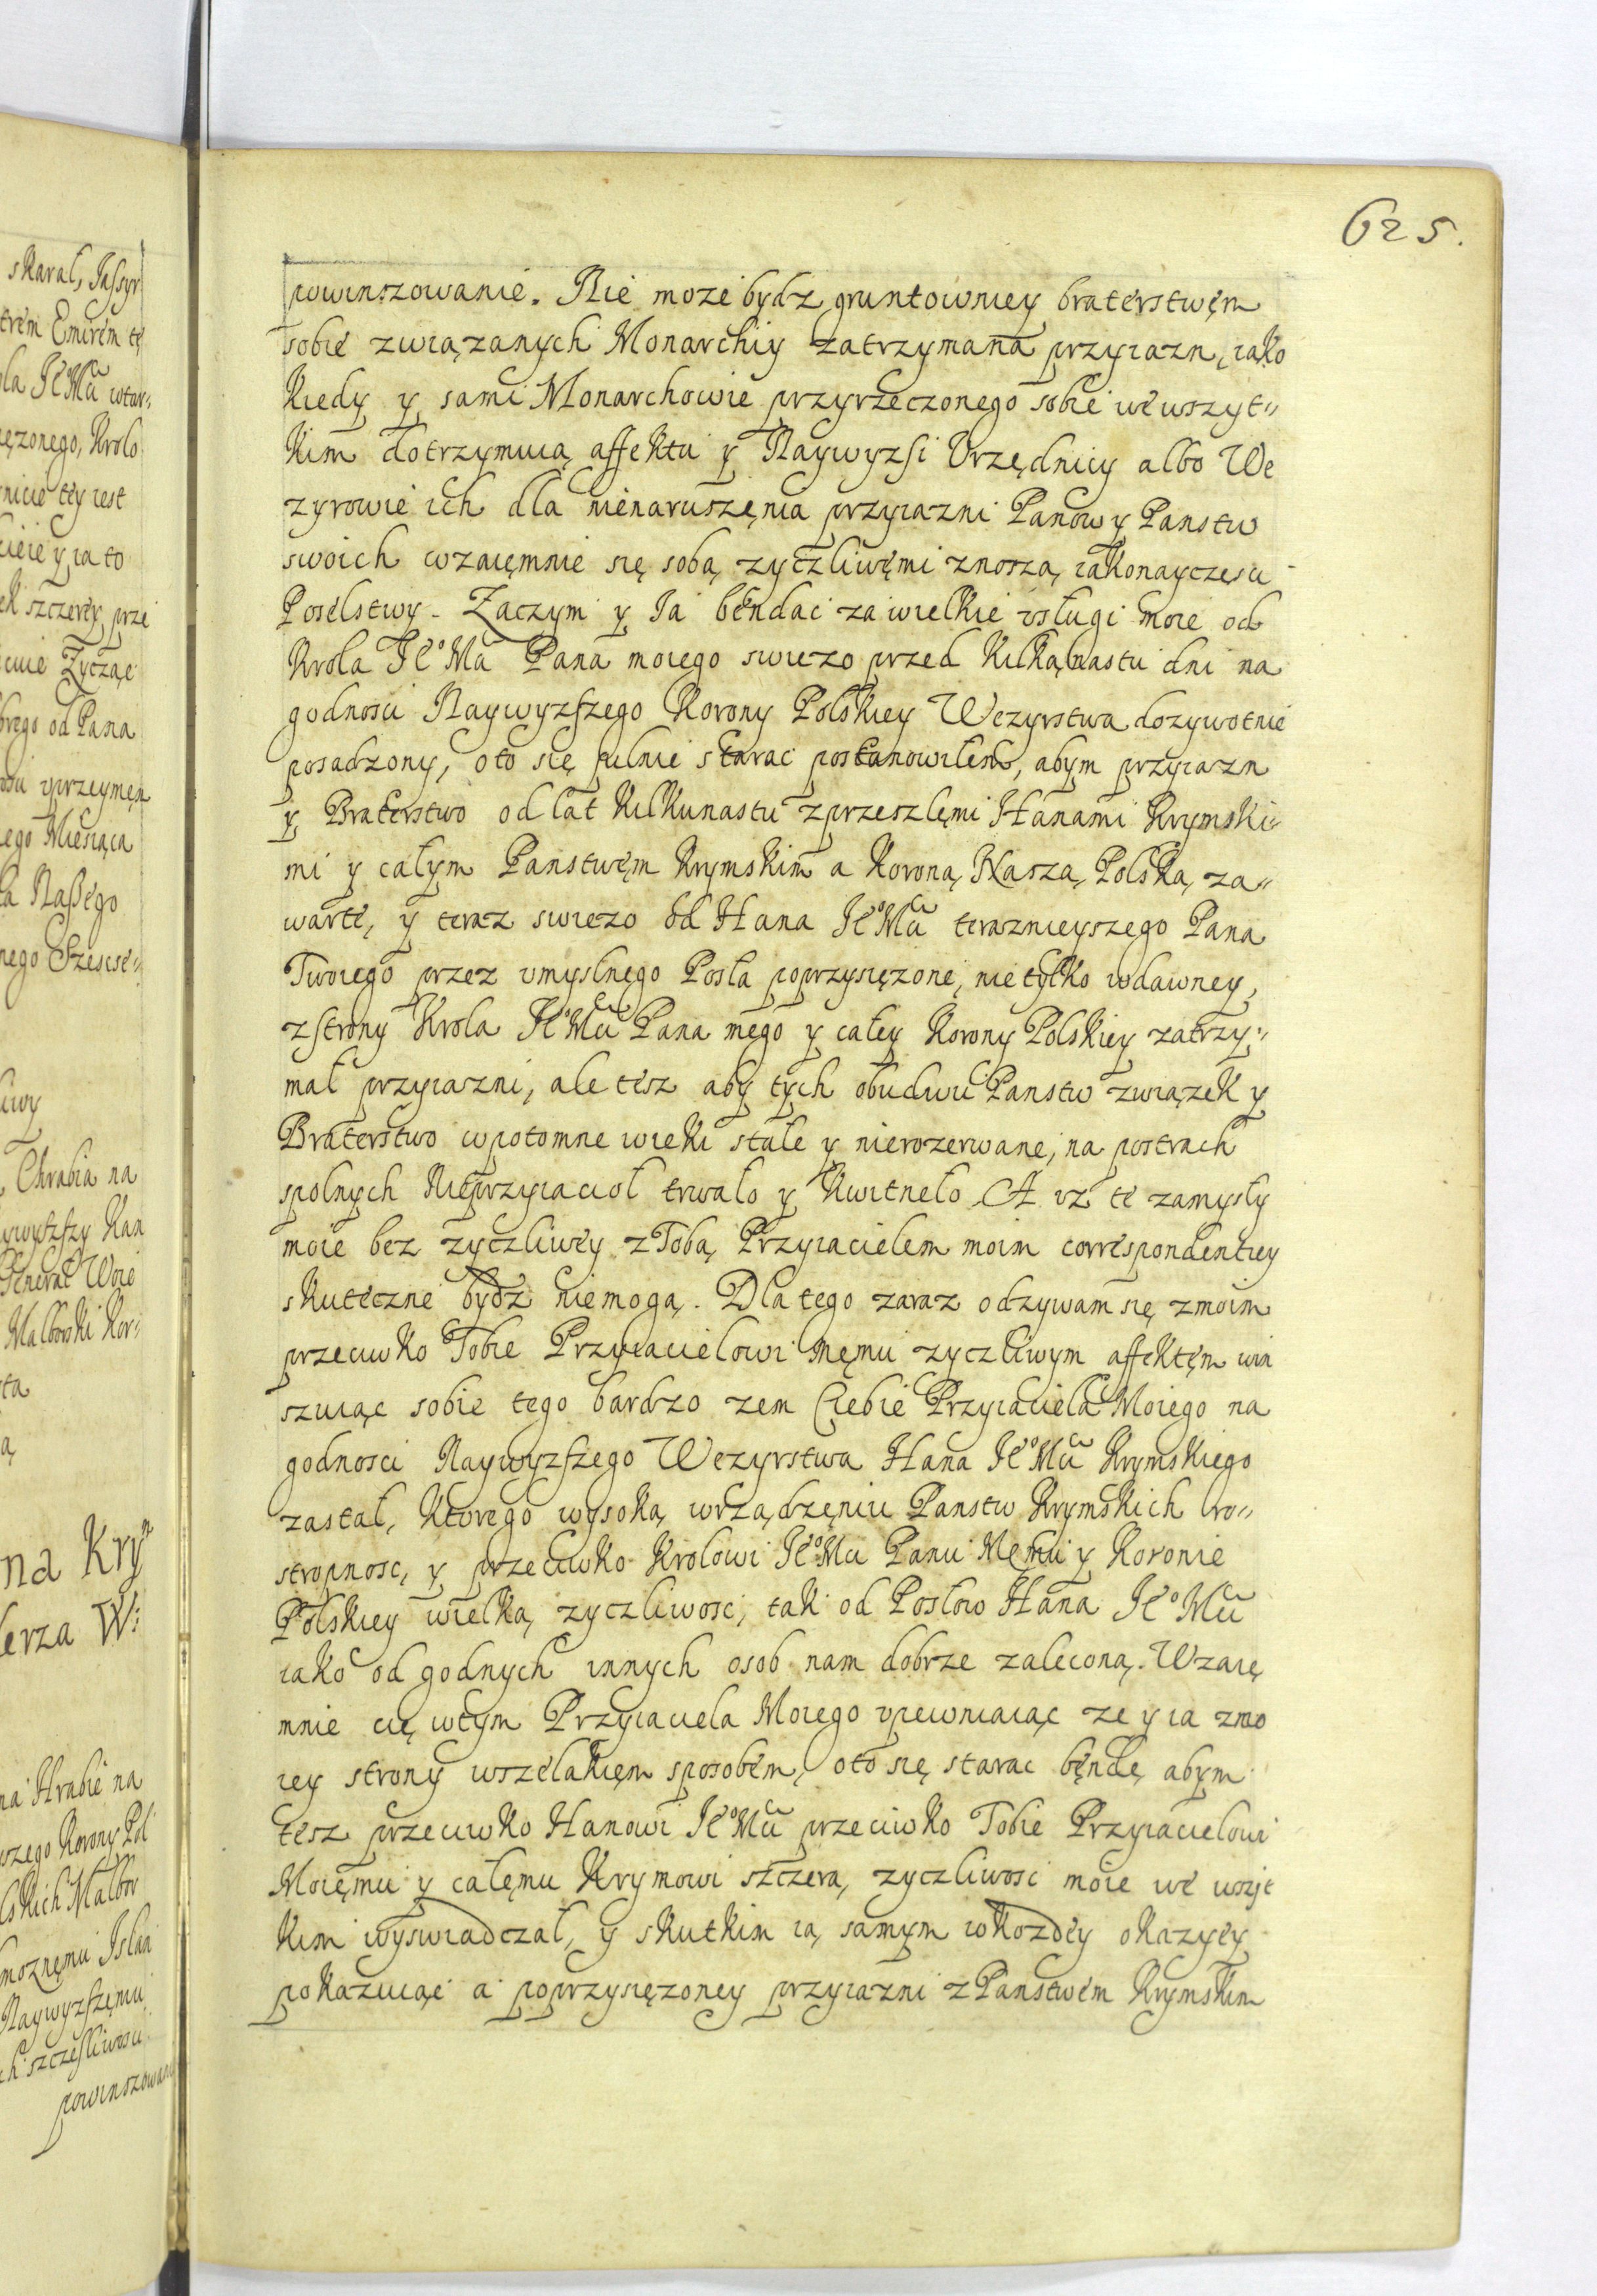 625.
powinszowanie. Nie moze bydz gruntowniey braterstwęm
sobie związanych Monarchiy zatrzymana przyiazn, iako
kiedy y sami Monarchowie przyrzeczonego sobie we wszyt„
kim dotrzymuią affektu y Naywyzsi Vrzędnicy albo We
zyrowie ich dla nienaruszęnia przyiazni Panow y Panstw
swoich wzaięmnie się sobą zyczliwęmi znoszą iakonayczęsci
Poselstwy. Zaczym y Ia będac za wielkie vsługi moie od
Krola Je͠o Mci Pana moiego swiezo przed kilkąnastu dni na
godnosci Naywyzszego Korony Polskiey Wezyrstwa dozywotnie
posadzony, oto się pilnie starac postanowiłem, abym przyiazn
y Braterstwo od lat kilkunastu z przeszlęmi Hanami Krymski„
mi y całym Panstwęm Krymskim a Koroną Naszą Polską za„
warte, y teraz swiezo od Hana Je͠o Mci terazniejszego Pana
Twoiego przez vmyslnego Posła poprzysięzone, nie tylko wdawney,
z strony Krola Je͠o Mci Pana mego y całey Korony Polskiey zatrzy„
mał przyiazni, ale tesz aby tych obudwu Panstw związek y
Braterstwo wpotomne wieki stałe y nierozerwane, na postrach
spolnych Nieprzyiacioł trwało y kwitneło A vz te zamysły
moie bez zyczliwey z Tobą Przyiacielem moim correspondentiey
skuteczne bydz niemogą. Dla tego zaraz odzywam się zmoim
przeciwko Tobie Przyiacielowi męmu zyczliwym affektęm win
szuiąc sobie tego bardzo zem Ciebie Przyiaciela Moiego na
godnosci Naywyzszego Wezyrstwa Hana Je͠o Mci Krymskiego
zastał, Ktorego wysoką wrządzęniu Panstw Krymskich ro„
stropnosc, y przeciwko Krolowi Je͠o Mci Panu Męmu y Koronie
Polskiey wielką zyczliwosc, tak od Posłow Hana Je͠o Mci
iako od godnych innych osob nam dobrze zaleconą. Wzaię
mnie cię wtym Przyiaciela Moiego vpewniaiąc ze y ia zmo
iey strony wszelakięm sposobem, oto się starac bęndę abym
tesz przeciwko Hanowi Je͠o Mci przeciwko Tobie Przyiacielowi
Moięmu y całęmu Krymowi szczerą zyczliwosc moie we wszyt
kim wyswiadczał, y skutkim ią samym wkozdey okazyey
pokazuiąc a poprzysięzoney przyiazni z Panstwem Krymskim